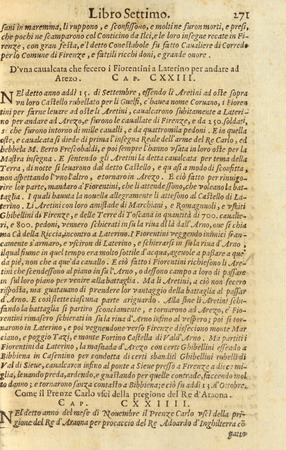 Libro Settimo. 271
in maremma, li ruppono, e sconfissono, e molti ne furon morti, e presi,
che pochi ne scamparono col Conticino da Ilci, e le loro insegne recate in Fi-
renze, con gran festa, e'l detto Conestabole fu fatto Caualiere di Corredo
per lo Comune di Firenze, e fatili ricchi doni, e grande onore.
D'vna caualcata che fecero i Fiorentini a Laterino per andare ad
Arezo. CAP. CXXIII.
NEl detto anno addì 15. di Settembre, essendo li Aretini ad oste sopra
vn loro Castello rubellato per li Guelfi, c'hauea nome Coruano, i Fioren-
tini per farne leuare ad oste li Aretini, caualcarono subitamente a Lateri-
no per andare ad Arezo: furono le caualate di Firenze, e da 150. soldati,
sì che furono intorno di mille caualli, e da quattromila pedoni. E in quella
oste, e caualcata si diede di prima l'insegna Reale dell'arme del Re Carlo, ed
hebbela M. Berto Frescobaldi, e poi sempre l'hanno vsata in loro oste per la
Mastra insegna. E sentendo gli Aretini la detta caualcata per tema della
Terra, di notte si leuarono dal detto Castello, e quasi a modo di sconfitta,
non aspettando l'vno l'altro, e tornarono in Arezo. E ciò fatto per rinuigo-
rire lor parte, mandaro a' Fiorentini, che li attendessono, che voleano la bat-
taglia. I quali hauuta la nouella allegramente li attesono al Castello di La-
terino. Li Aretini con loro amistade di Marchiani, e Romagnuoli, e vsciti
Ghibellini di Firenze, e delle Terre di Toscana in quantità di 700. caualie-
ri, e 8000. pedoni, vennero schierati in su la riua di là dall'Arno, che si chia-
ma Cà della Riccia, incontro a Laterino. I Fiorentini veggendo i nimici fran-
camente s'armaro, e vsciron di Laterino, e schierarsi in su la riua d'Arno,
il qual fiume in quel tempo era molto sottile d'acqua, ageuole a passare a que'
da piè, non che a que' da cauallo. E ciò fatto i Fiorentini richiesono li Areti-
ni che scendessono al piano in su l'Arno, o dessono campo a loro di passare
in sul loro piano per venire alla battaglia. Ma li Aretini, a ciò non fecero
risposta, ma guatauano di prendere lor vantaggio della battaglia al passare
d'Arno. E così stette ciascuna parte a riguardo. Alla fine li Aretini schi-
fando la battaglia si partiro sconciamente, e tornarono ad Arezo, e' Fio-
rentini rimasero schierati in su la riua d'Arno infino al vespero; poi si torna-
rono in Laterino, e poi vegnendone verso Firenze disfeciono monte Mar-
ciano, e poggio Tazi, e monte Fortino Castella di Val d'Arno. Ma partiti
i Fiorentini da Laterino, la masnada d'Arezo con certi Ghibellini essendo a
Bibbiena in Casentino per condotta di certi sbanditi Ghibellini rubelli di
Val di Sieue, caualcaron infino al ponte a Sieue presso a Firenze a diece mi-
glia, leuando preda, ardendo, e guastando per quelle contrade, faccendo mol-
to danno; e tornarono sanza contasto a Bibbiena; e ciò fu addì 13. d'Ottobre.
Come il Prenze Carlo vscì della pregione del Re d'Araona.
CAP. CXXIIII.
NEl detto anno del mese di Nouembre il Prenze Carlo vscì della pri-
gione del Re d'Araona per procaccio del Re Adoardo d'Inghilterra cō